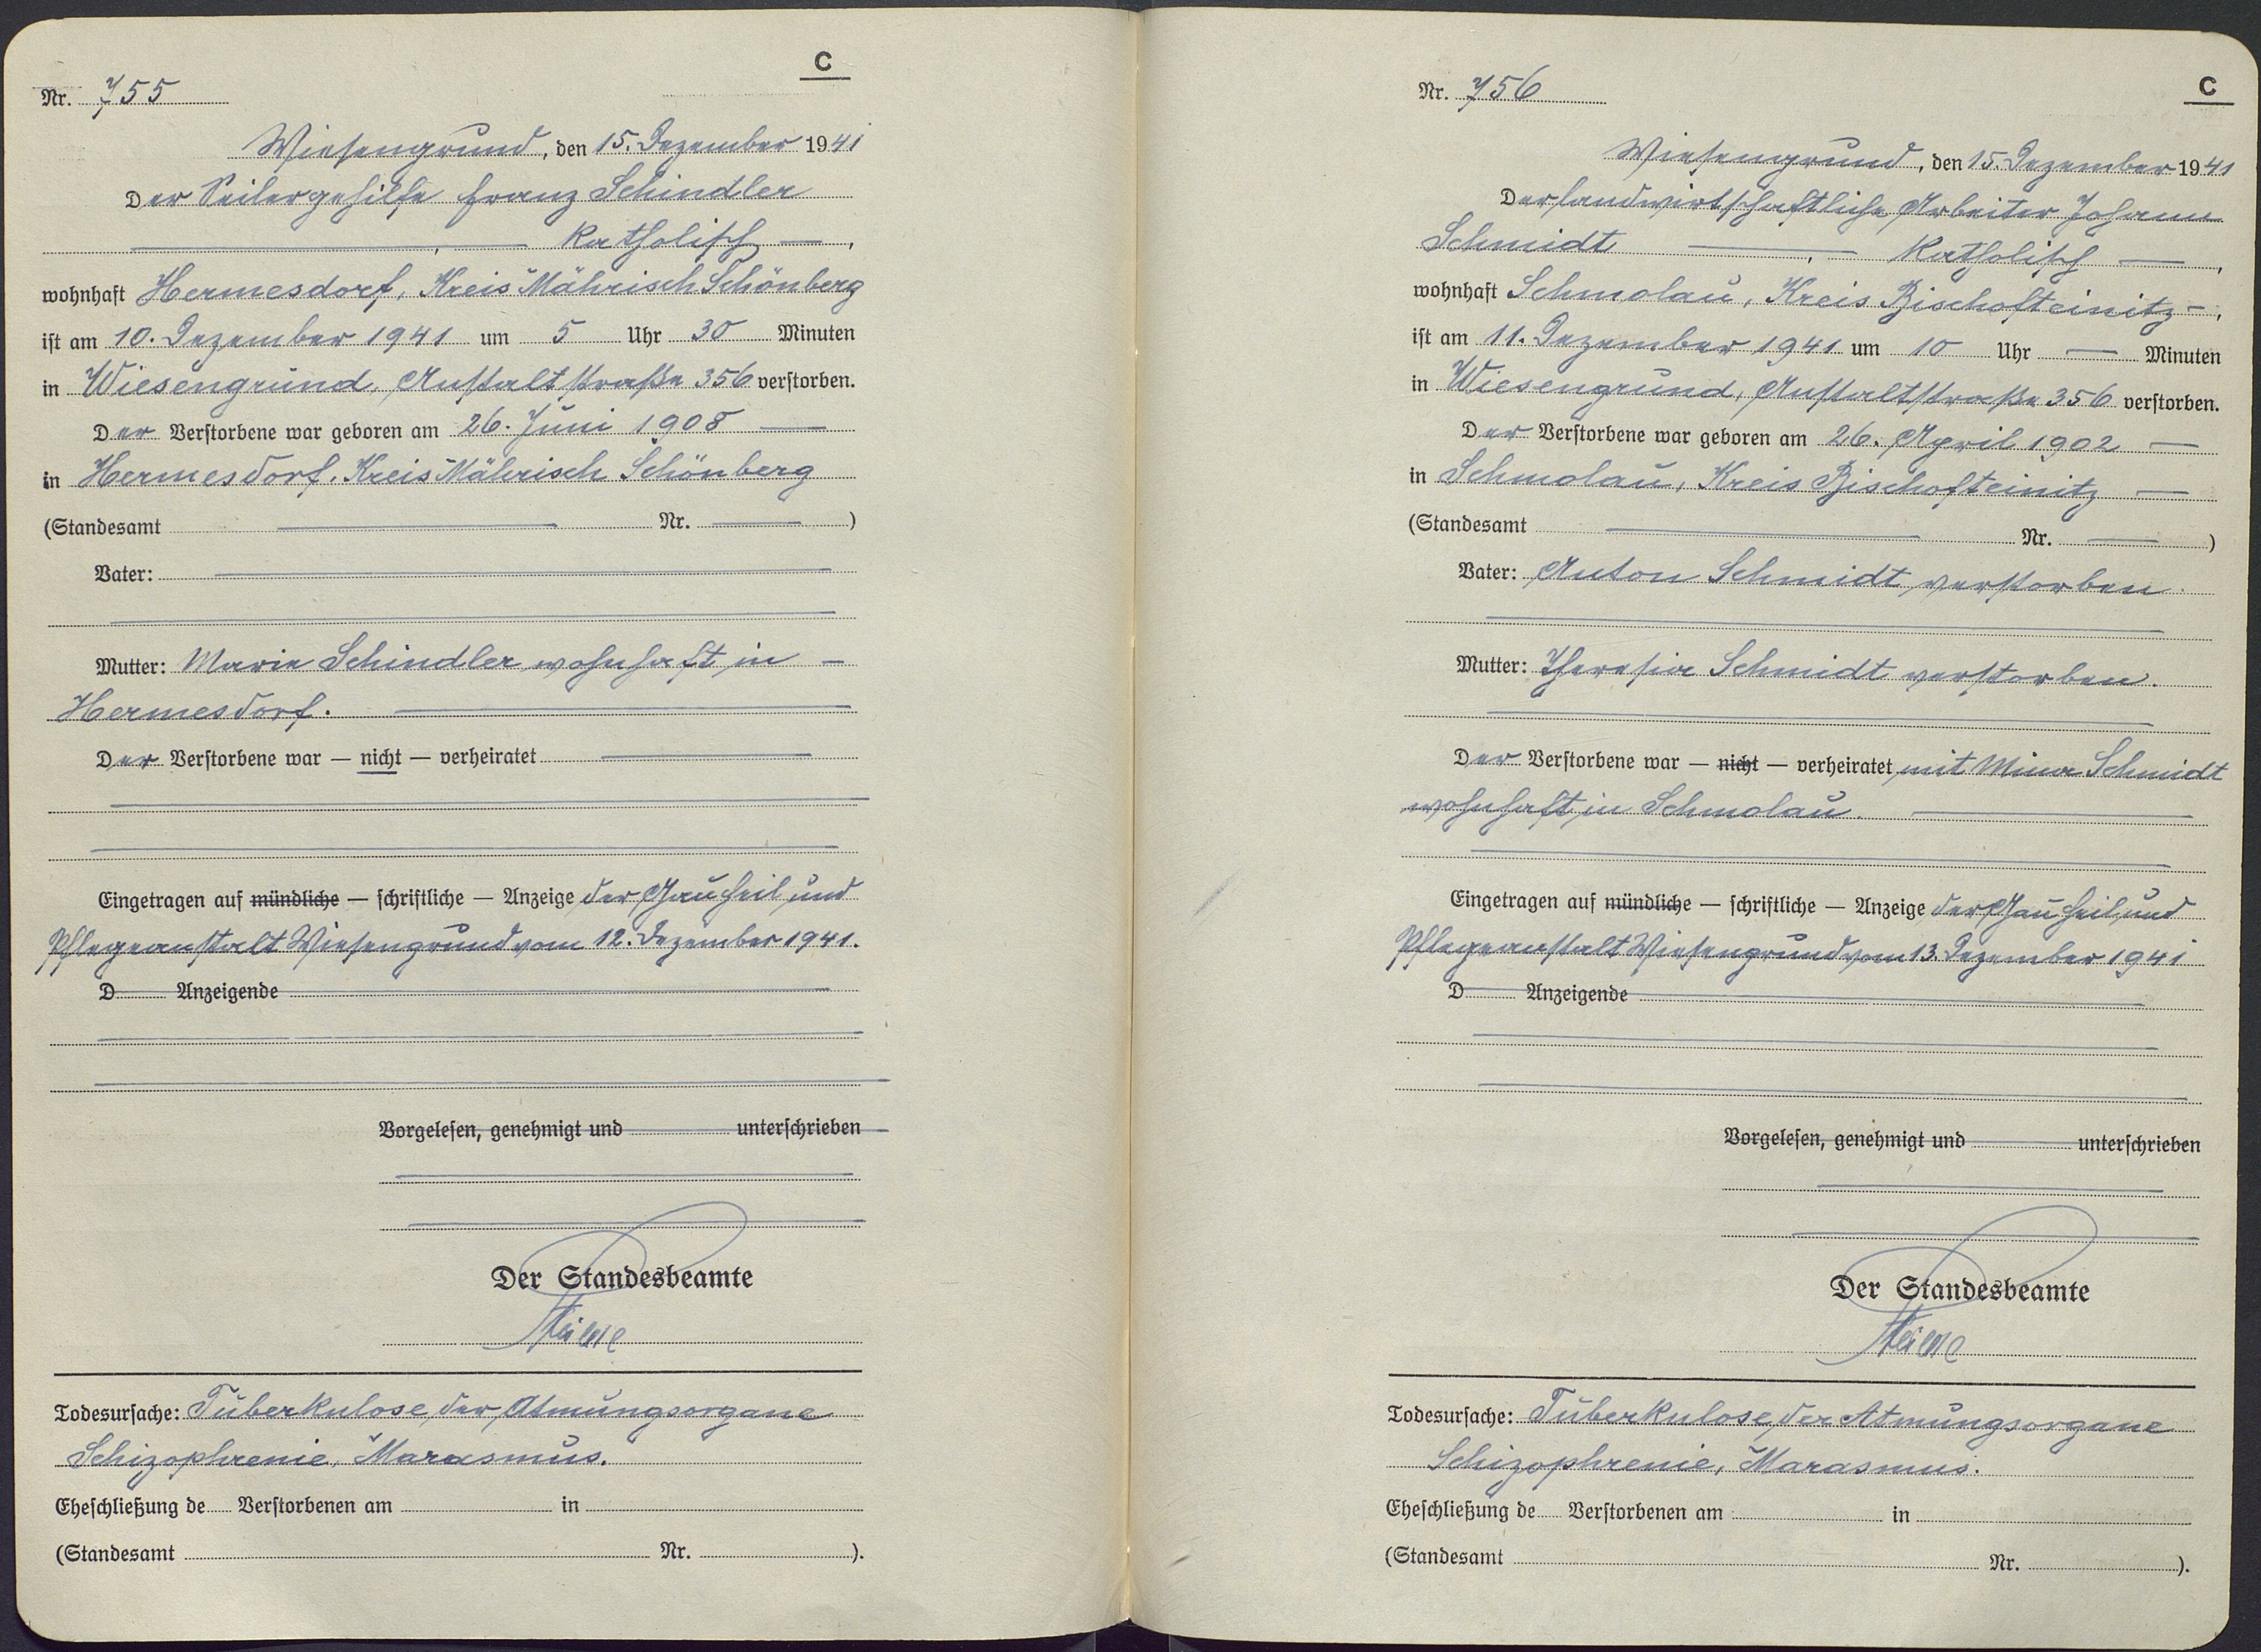 C
Nr. 755
Wiesengrund, den 15. Dezember 1941
Der Seilergehilfe Franz Schindler
katholisch
wohnhaft Hermesdorf, Kreis Mährisch Schönberg
ist am 10. Dezember 1941 um 5 Uhr 30 Minuten
in Wiesengrund, Anstaltstraße 356 verstorben.
Der Verstorbene war geboren am 26. Juni 1908
in Hermesdorf, Kreis Mährisch Schönberg
(Standesamt Nr. )
Vater:
Mutter: Marie Schindler wohnhaft in
Hermesdorf.
Der Verstorbene war — nicht — verheiratet
Eingetragen auf mündliche — schriftliche — Anzeige der Gau Heil und
Pflegeanstalt Wiesengrund vom 12. Dezember 1941.
D Anzeigende
Vorgelesen, genehmigt und unterschrieben
Der Standesbeamte
Todesursache: Tuberkulose der Atmungsorgane
Schizophrenie, Marasmus.
Eheschließung de Verstorbenen am in
(Standesamt Nr. ).
C
Nr. 756
Wiesengrund, den 15. Dezember 1941
Der landwirtschaftliche Arbeiter Johann
Schmidt , katholisch ,
wohnhaft Schmolau, Kreis Bischofteinitz,
ist am 11. Dezember 1941 um 10 Uhr — Minuten
in Wiesengrund, Anstaltstraße 356 verstorben.
Der Verstorbene war geboren am 26. April 1902
in Schmolau, Kreis Bischofteinitz
(Standesamt Nr. )
Vater: Anton Schmidt verstorben
Mutter: Theresia Schmidt verstorben.
Der Verstorbene war — nicht — verheiratet mit Mina Schmidt
wohnhaft in Schmolau.
Eingetragen auf mündliche — schriftliche — Anzeige der Gau Heil und
Pflegeanstalt Wiesengrund vom 13. Dezember 1941
D Anzeigende
Vorgelesen, genehmigt und unterschrieben
Der Standesbeamte
Todesursache: Tuberkulose der Atmungsorgane
Schizophrenie, Marasmus.
Eheschließung de Verstorbenen am in
(Standesamt Nr. ).